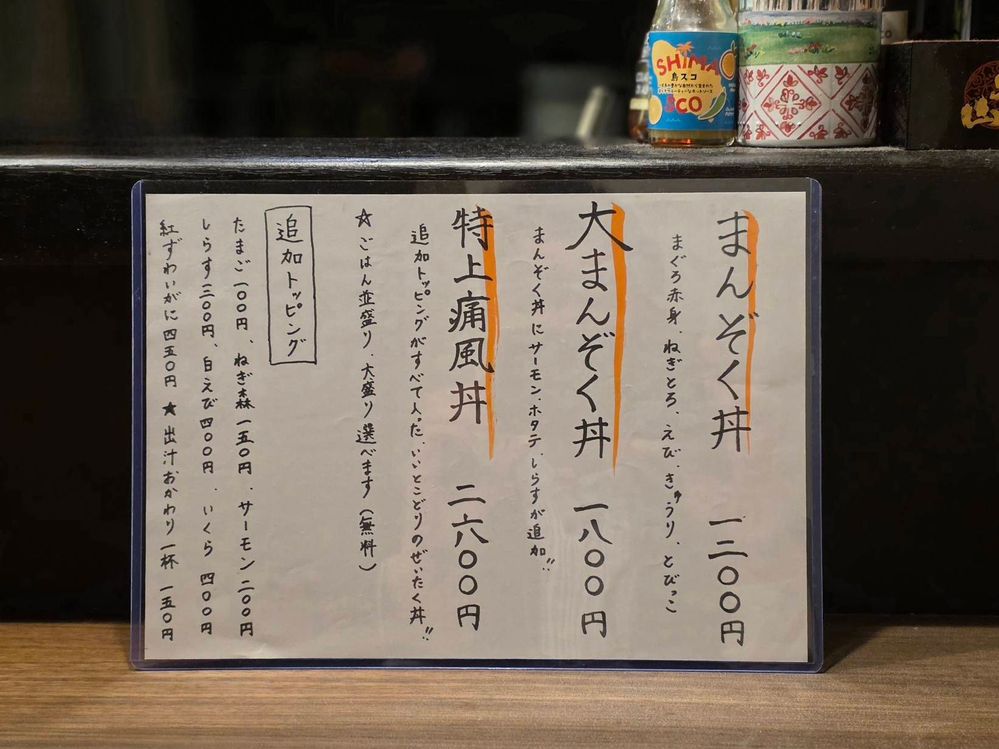 SHIMA
島スコ
SCO
まんぞく丼 一二〇〇円
まぐろ赤身、ねぎとろ、えび、きゅうり、とびっこ
大まんぞく丼 一八〇〇円
まんぞく丼にサーモン、ホタテ、しらすが追加!!
特上痛風丼 二六〇〇円
追加トッピングがすべて入った、いいとこどりのぜいたく丼!!
☆ごはん並盛り、大盛り選べます(無料)
追加トッピング
たまご一〇〇円、ねぎ森一五〇円、サーモン二〇〇円
しらす三〇〇円、白えび四〇〇円、いくら四〇〇円
紅ずわいがに四五〇円 ★出汁おかわり一杯 一五〇円